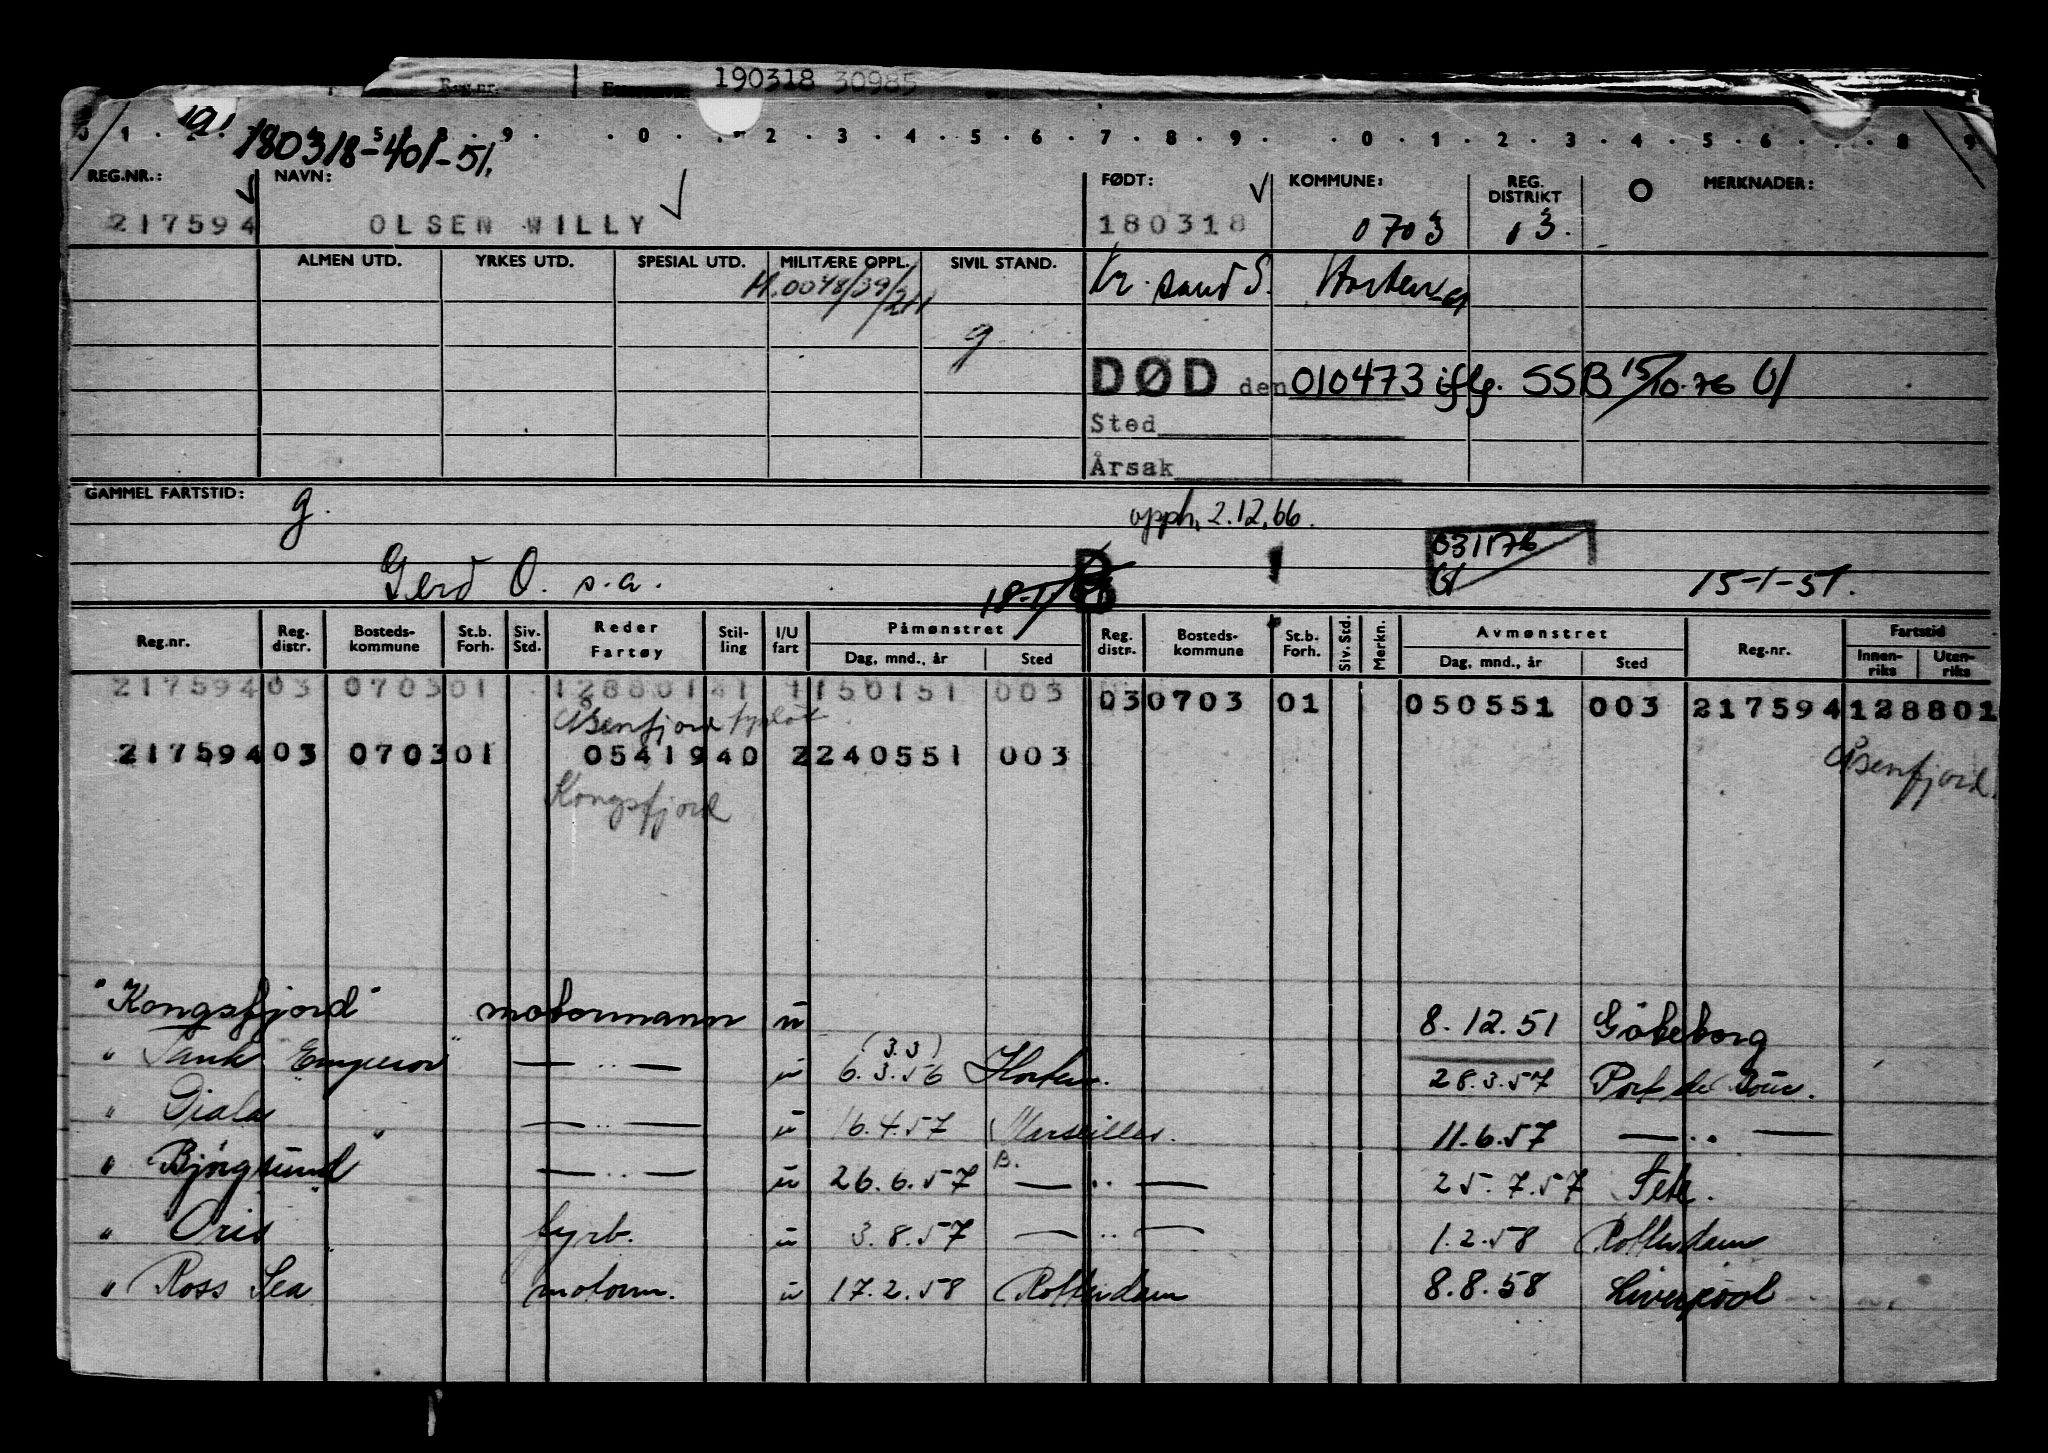 Reg.nr. 190318 30985
1 9. 0 2 3 4 5 6 7 8 9 0 1 2 3 4 5 6 8 9
180318-401-51.
REG.NR.: NAVN: FØDT: KOMMUNE: REG. DISTRIKT MERKNADER:
217594 OLSEN WILLY 180318 0703 03.
ALMEN UTD. YRKES UTD. SPESIAL UTD. MILITÆRE OPPL. SIVIL STAND. Kr. sand S. Horten
M.0048/39/211
g
DØD den 010473 iflg. SSB 15/10-76
Sted
Årsak
GAMMEL FARTSTID: g. opph. 2.12.66.
031176
Gerd O. s.a. 15-1-51.
Reg.nr. Reg. distr. Bosteds-kommune St.b. Forh. Siv. Std. Reder Fartøy Stil-ling I/U fart Påmønstret Dag, mnd., år Sted Reg. distr. Bosteds-kommune St.b. Forh. Siv. Std. Merkn. Avmønstret Dag, mnd., år Sted Reg.nr. Fartstid Innen-riks Uten-riks
217594 03 0703 01 12880141 1 150151 003 03 0703 01 050551 003 217594 128801
Åsenfjord
217594 03 0703 01 05419 40 2 240551 003 Åsenfjord
Kongsfjord
"Kongsfjord" motormann u 8.12.51 Göteborg
(3.3)
" Tank Emperor" — " — u 6.3.56 Horten. 28.3.57 Port de Bouc.
" Diala " — " — u 16.4.57 Marseilles. 11.6.57 — " —
" Bjørgsund " — " — u 26.6.57 — " — 25.7.57 Sete.
B.
" Oris " fyrb. u 3.8.57 — " — 1.2.58 Rotterdam
" Ross Sea " motorm. u 17.2.58 Rotterdam 8.8.58 Liverpool